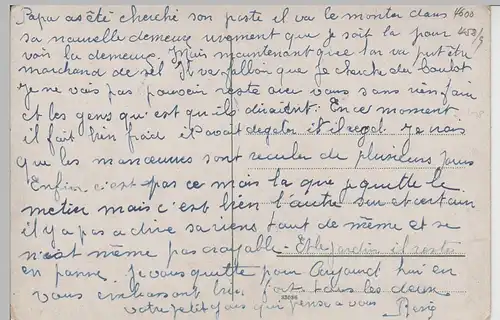 Papa as été cherché son poste il va le monter dans
sa nouvelle demeure vivement que je soit la pour
voir la demeure. Mais maintenant que l'on va peut être
marchand de sel Il va falloir que je cherche du boulot
je ne vais pas pouvoir reste avec vous sans rien faire
et les gens qu'est qu'ils diraient. En ce moment
il fait bien froid il avait degeler et il regel. je crois
que les manœuvres sont reculer de plusieurs jours
Enfin c'est pas ce mois la que je quitte le
metier mais c'est bien l'autre sur et certain
il y a pas a dire sa riens tant de même et se
n'est même pas croyable - Et le jardin il reste
en panne. Je vous quitte pour Aujourd hui en
vous embrassant bien fort tous les deux
votre petit gars qui pense a vous